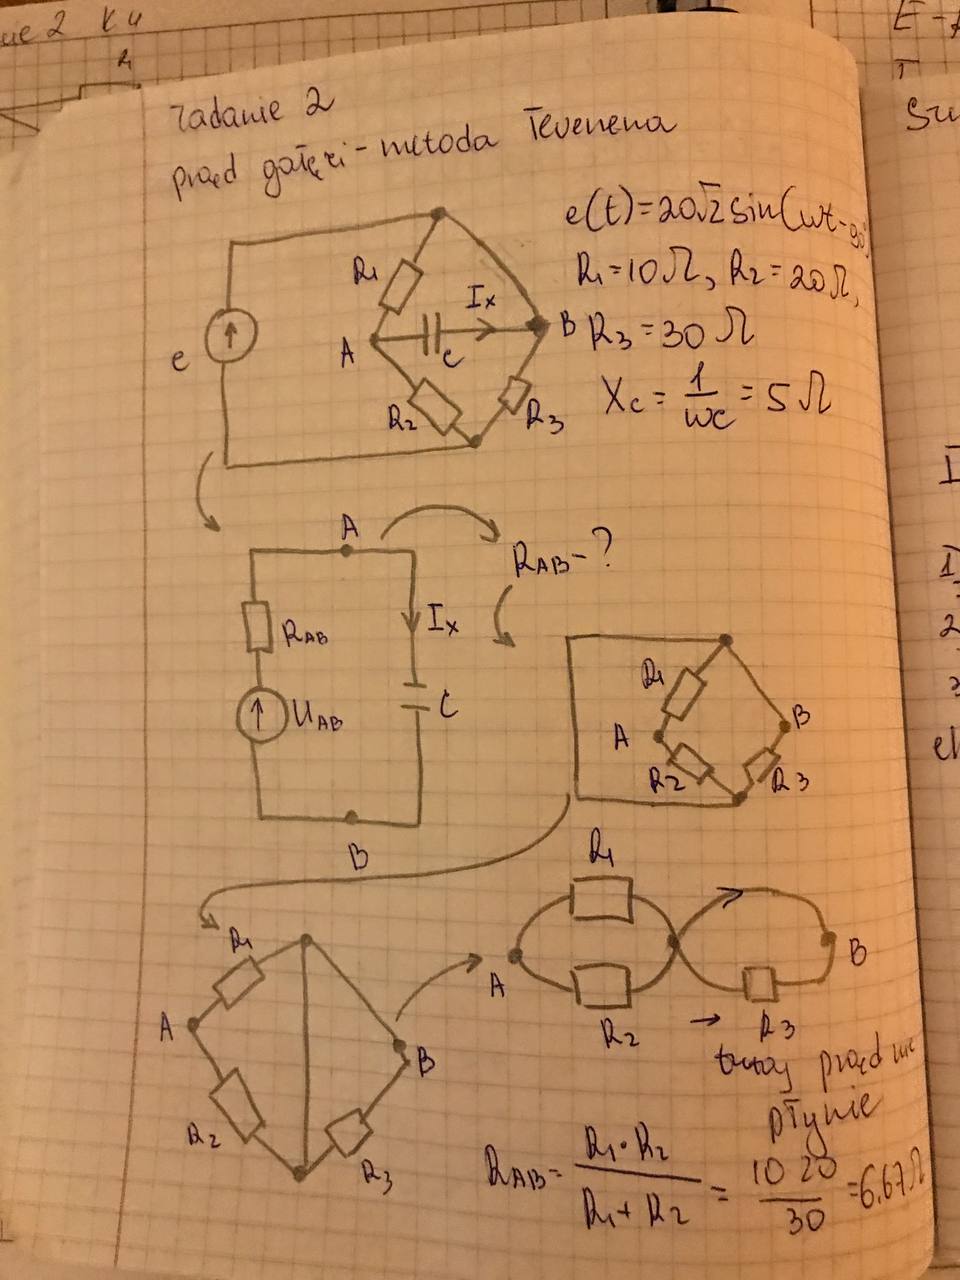 ie 2 K4
R1
E-
I
Zadanie 2
prąd gałęzi - metoda Tevenena
e(t)=20√2sin(wt-90°
R1=10Ω, R2=20Ω,
R3=30Ω
Xc = 1/wc = 5Ω
e
R1
Ix
A
B
C
R2
R3
A
RAB-?
RAB
Ix
UAB
C
B
R1
A
B
R2
R3
R1
A
B
R2
R3
R1
A
B
R2
→ R3
tutaj prąd nie
płynie
RAB = R1·R2/R1+R2 = 10 20/30 = 6.67Ω